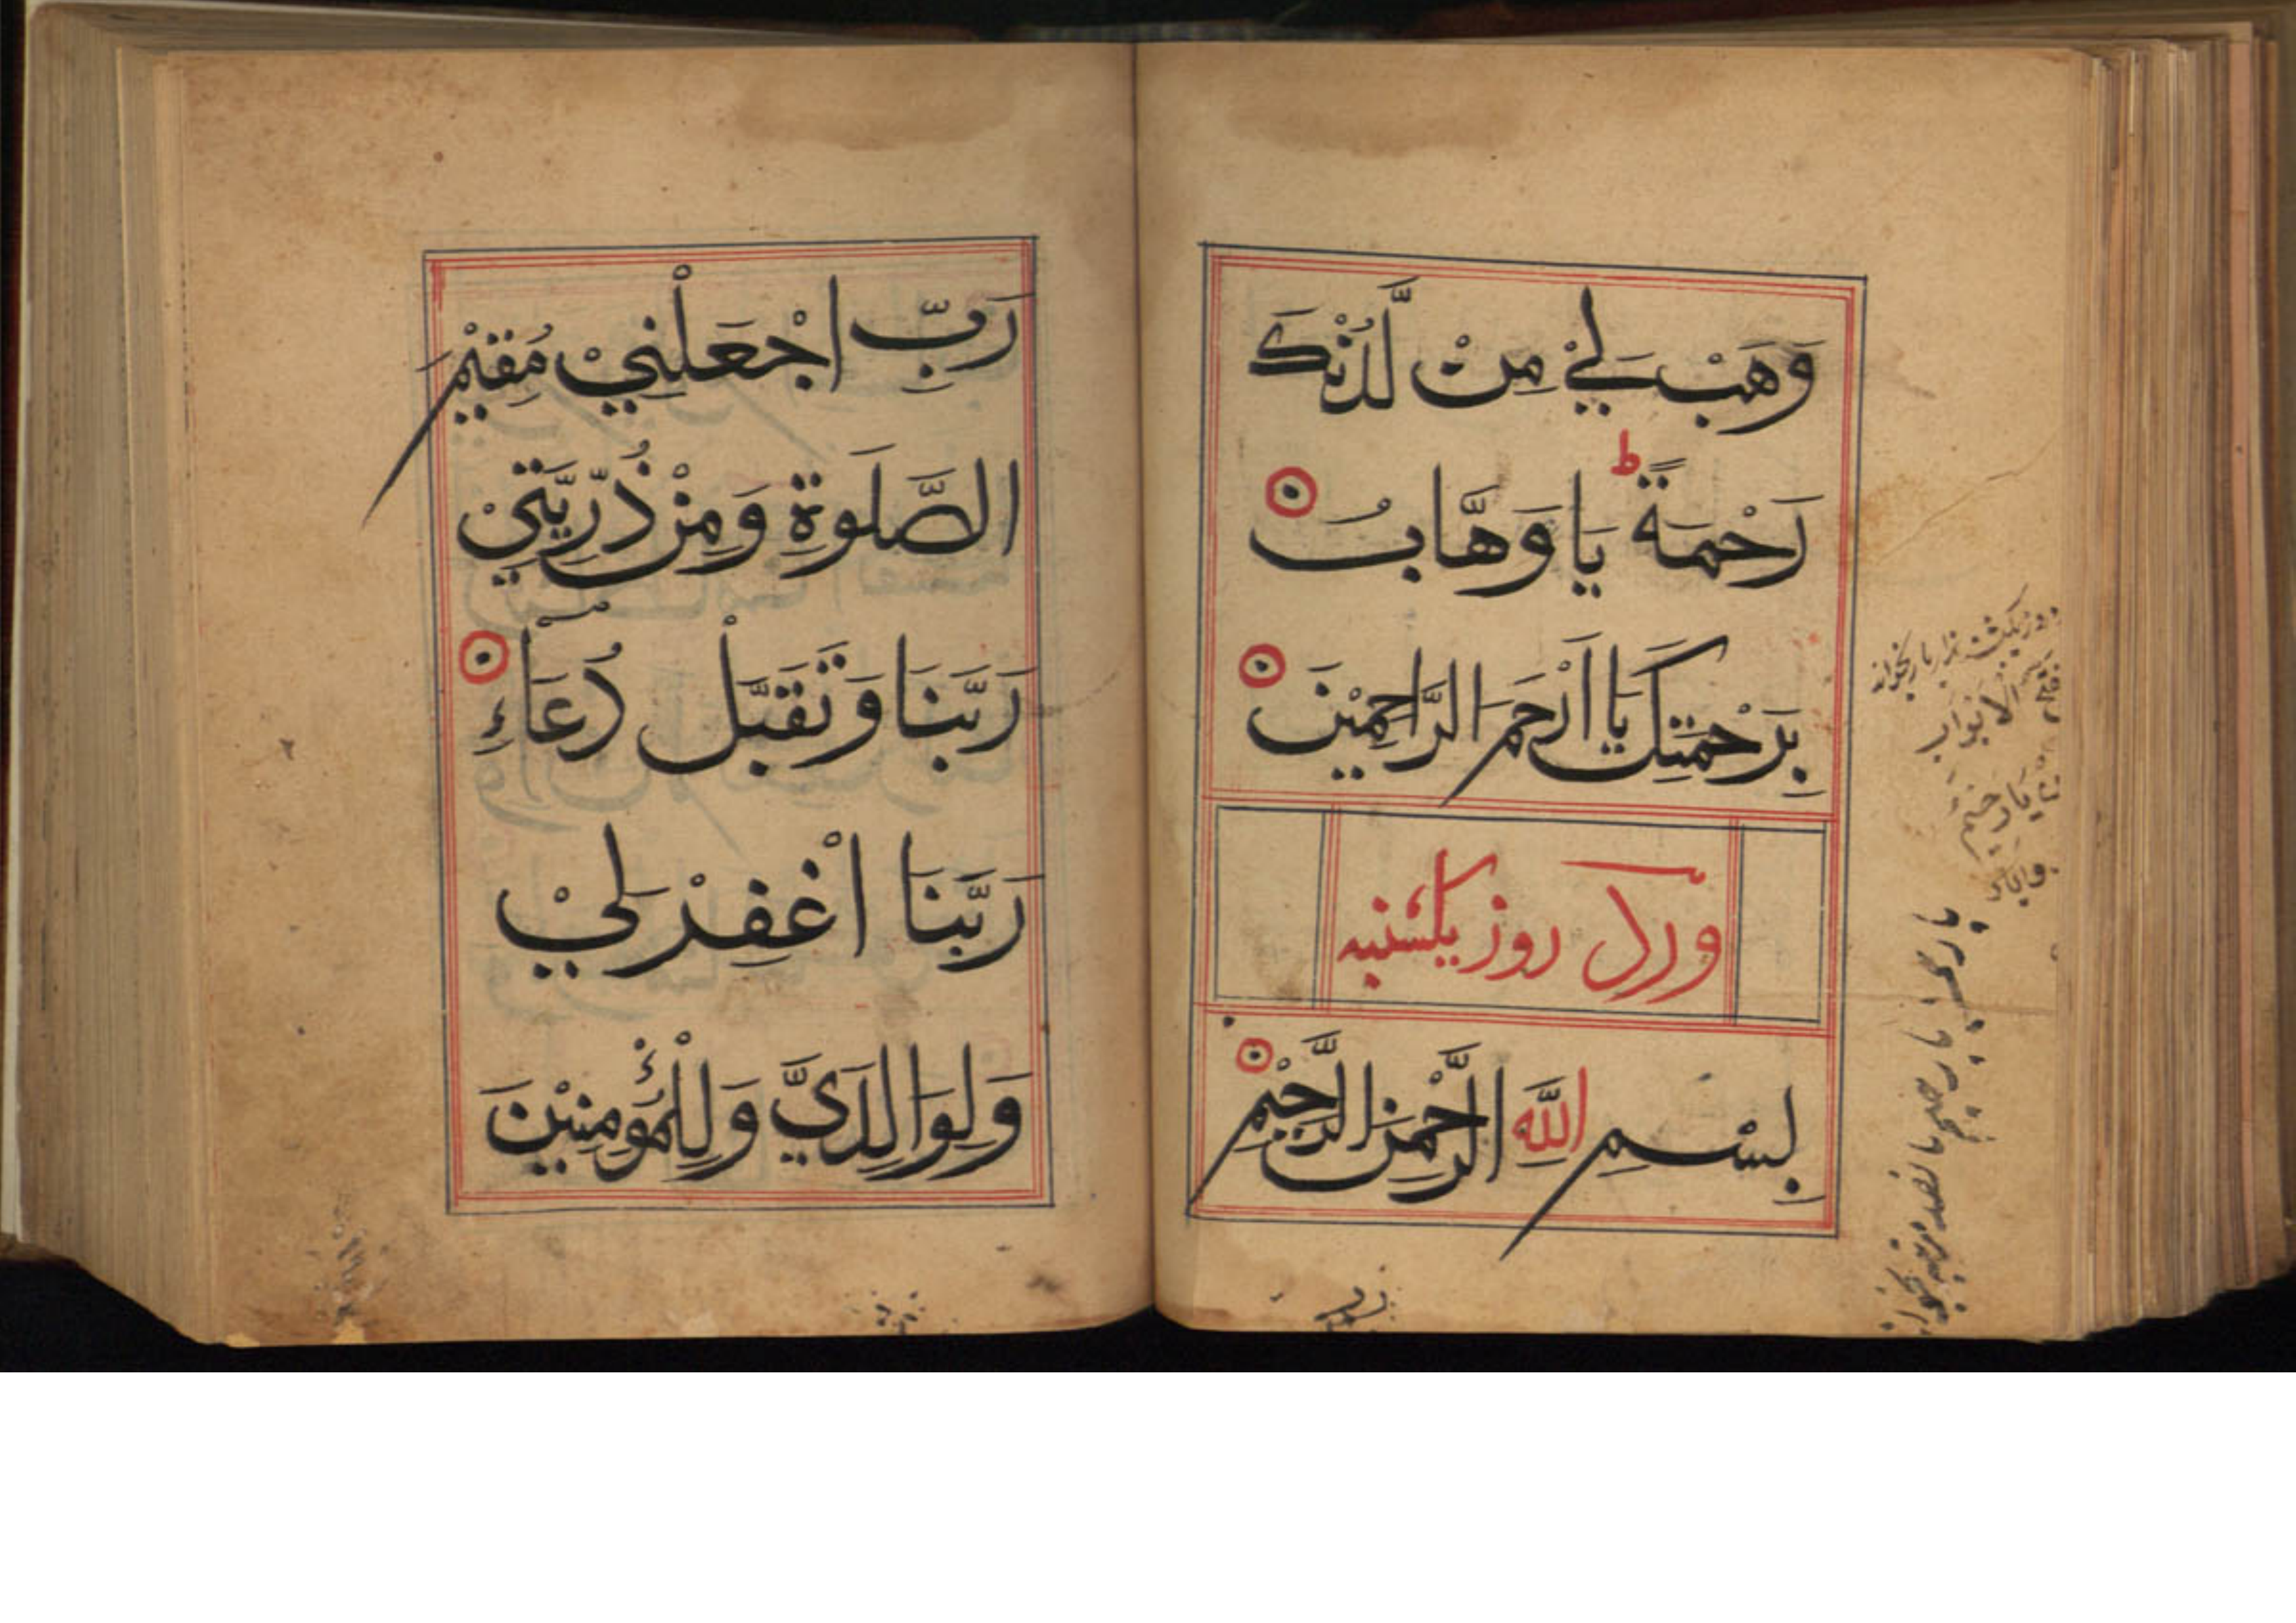 وَهَبْ لِيْ مِنْ لَّدُنْكَ
رَحْمَةً ط يَا وَهَّابُ
بِرَحْمَتِكَ يَا اَرْحَمَ الرَّاحِمِيْنَ
ورد روز یکشنبه
بِسْمِ اللّٰهِ الرَّحْمٰنِ الرَّحِيْمِ
رَبِّ اجْعَلْنِيْ مُقِيْمَ
الصَّلٰوةِ وَمِنْ ذُرِّيَّتِيْ
رَبَّنَا وَتَقَبَّلْ دُعَاءِ
رَبَّنَا اغْفِرْ لِيْ
وَلِوَالِدَيَّ وَلِلْمُؤْمِنِيْنَ